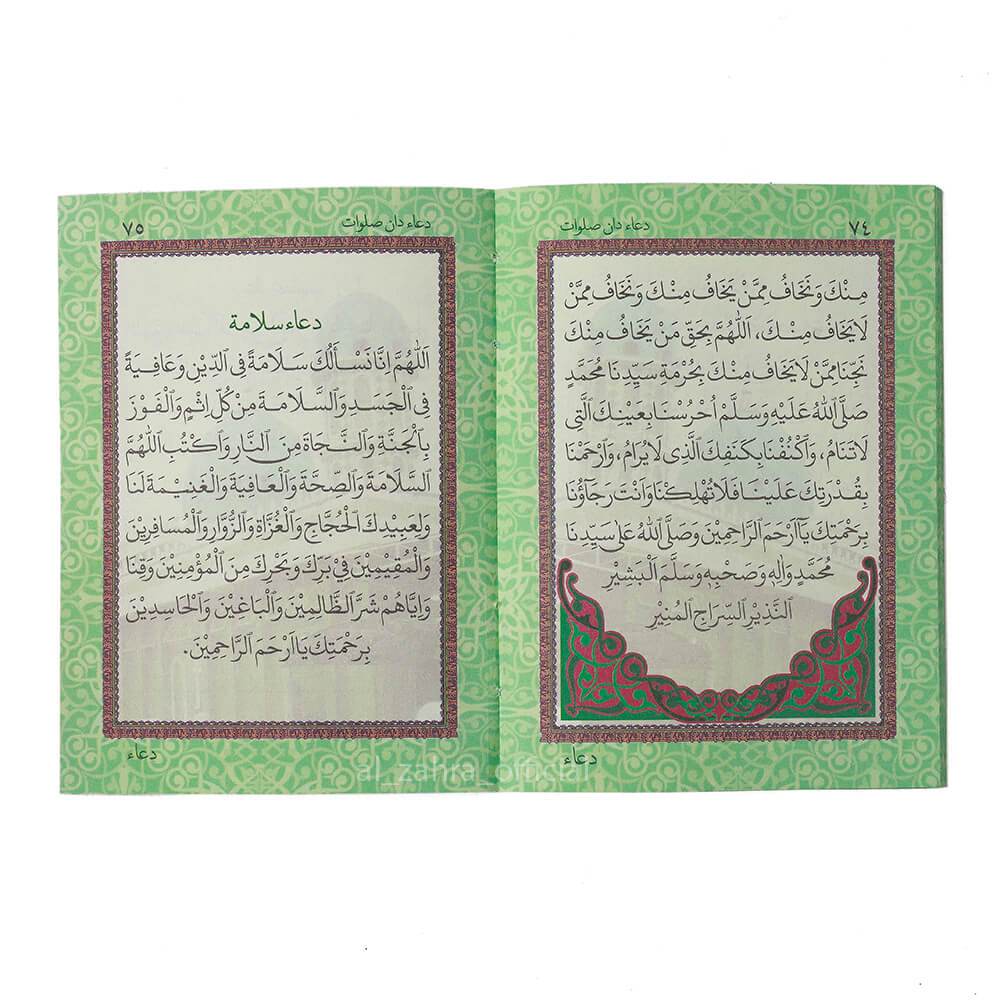 ٧٤
دعاء دان صلوات
مِنْكَ وَنَخَافُ مِمَّنْ يَخَافُ مِنْكَ وَنَخَافُ مِمَّنْ
لَا يَخَافُ مِنْكَ، اَللّٰهُمَّ بِحَقِّ مَنْ يَخَافُ مِنْكَ
نَجِّنَا مِمَّنْ لَا يَخَافُ مِنْكَ بِحُرْمَةِ سَيِّدِنَا مُحَمَّدٍ
صَلَّى اللهُ عَلَيْهِ وَسَلَّمَ أُحْرُسْنَا بِعَيْنِكَ الَّتِى
لَا تَنَامُ، وَاَكْنُفْنَا بِكَنَفِكَ الَّذِى لَا يُرَامُ، وَارْحَمْنَا
بِقُدْرَتِكَ عَلَيْنَا فَلَا تُهْلِكْنَا وَاَنْتَ رَجَاؤُنَا
بِرَحْمَتِكَ يَآاَرْحَمَ الرَّاحِمِيْنَ وَصَلَّى اللهُ عَلَى سَيِّدِنَا
مُحَمَّدٍ وَاٰلِهٖ وَصَحْبِهٖ وَسَلَّمَ اَلْبَشِيْرِ
النَّذِيْرِ السِّرَاجِ الْمُنِيْرِ
دعاء
٧٥
دعاء دان صلوات
دعاء سلامة
اَللّٰهُمَّ اِنَّا نَسْأَلُكَ سَلَامَةً فِى الدِّيْنِ وَعَافِيَةً
فِى الْجَسَدِ وَالسَّلَامَةَ مِنْ كُلِّ اِثْمٍ وَالْفَوْزَ
بِالْجَنَّةِ وَالنَّجَاةَ مِنَ النَّارِ وَاكْتُبِ اللّٰهُمَّ
السَّلَامَةَ وَالصِّحَّةَ وَالْعَافِيَةَ وَالْغَنِيْمَةَ لَنَا
وَلِعَبِيْدِكَ الْحُجَّاجِ وَالْغُزَّاةِ وَالزُّوَّارِ وَالْمُسَافِرِيْنَ
وَالْمُقِيْمِيْنَ فِيْ بَرِّكَ وَبَحْرِكَ مِنَ الْمُؤْمِنِيْنَ وَقِنَا
وَاِيَّاهُمْ شَرَّ الظَّالِمِيْنَ وَالْبَاغِيْنَ وَالْحَاسِدِيْنَ
بِرَحْمَتِكَ يَا اَرْحَمَ الرَّاحِمِيْنَ.
دعاء
al_zahra_official